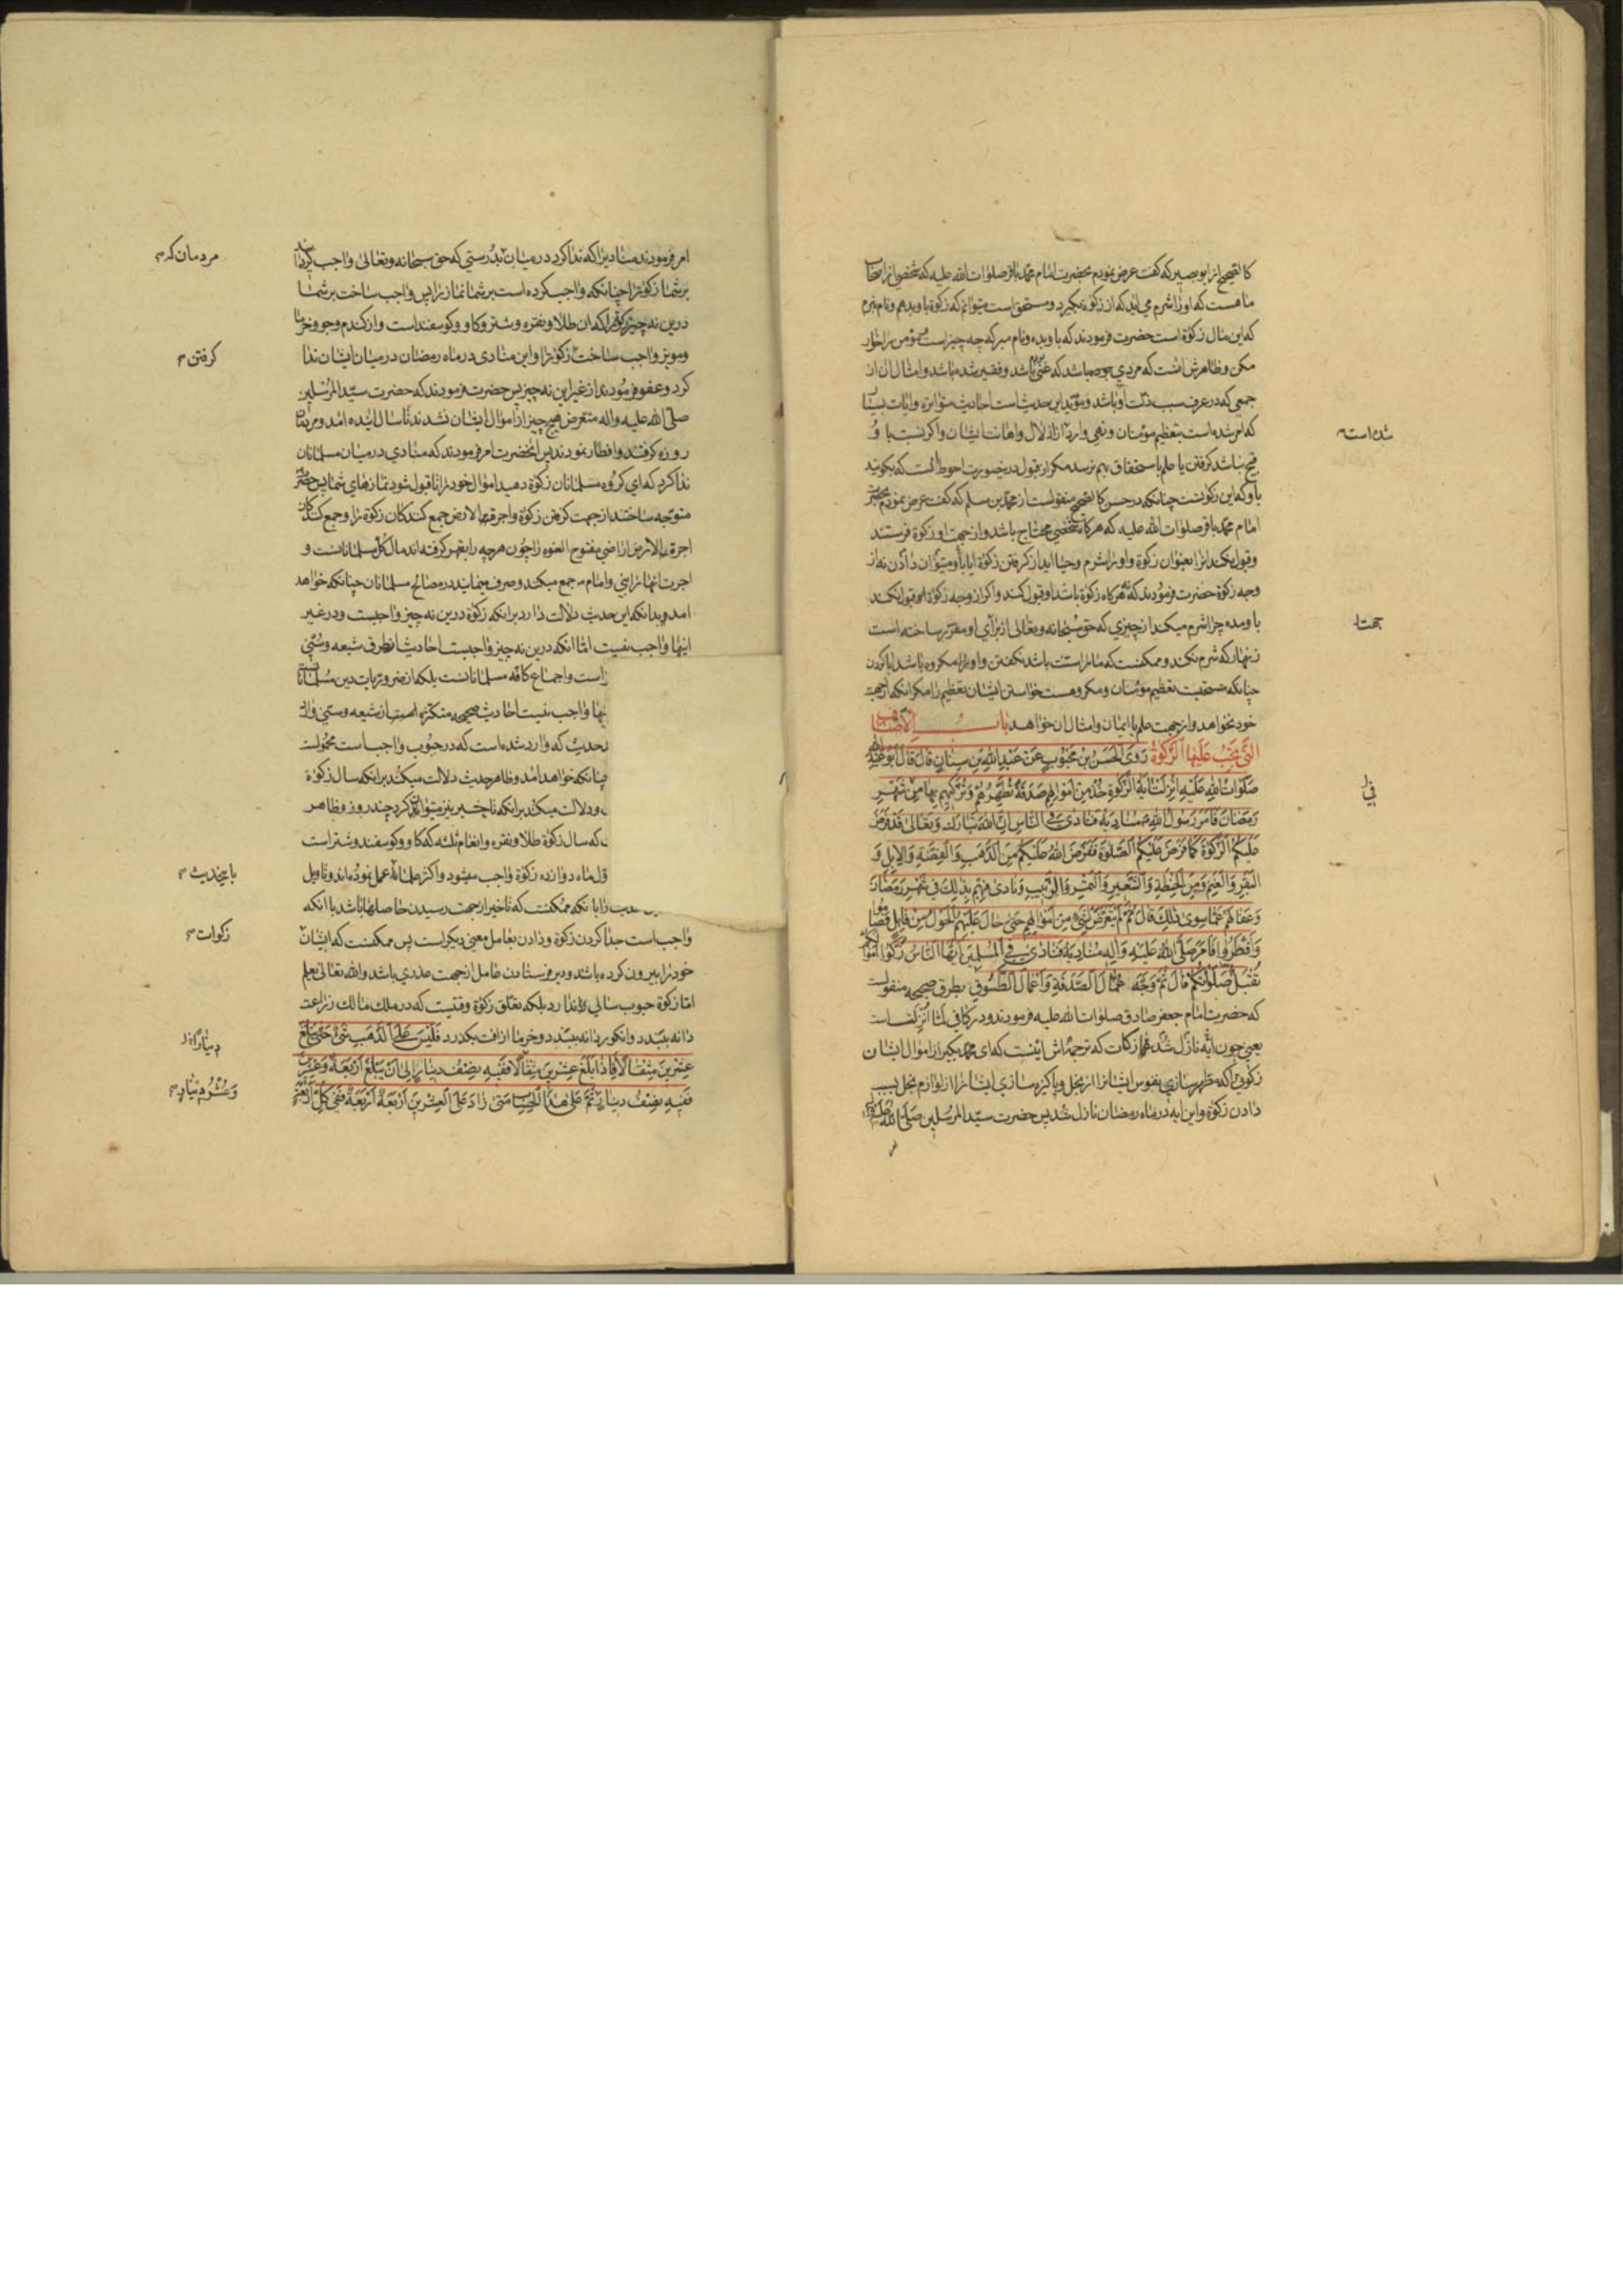 کالصحیح از ابو بصیر که گفت عرض نمودم بحضرت امام محمد باقر صلوات الله علیه که شخصی از اصحاب
ما هست که او را شرم می آید که از زکوة بگیرد و مستحق است میتوانم که زکوة باو بدهم و نام نبرم
که این مال زکوة است حضرت فرمودند که باو بده و نام مبر که چه چیز است و مؤمن را خوار
مکن و ظاهرش آنست که مردی بوده باشد که غنی باشد و فقیر شده باشد و امثال آن از
جمعی که در عرف سبب ذلت او باشد و مؤید این حدیث است احادیث متواتره و ایات بسیار
که امر شده است بتعظیم مؤمنان و نهی وارد از اذلال و اهانت ایشان و اگر نسبت باو
قبح نباشد گرفتن یا علم باستحقاق بهم نرسد مگر از قبول درینصورت احوط آنست که بگویند
باو که این زکوتست چنانکه در حسن کالصحیح منقولست از محمد بن مسلم که گفت عرض نمودم بحضرت
امام محمد باقر صلوات الله علیه که هرگاه شخصی محتاج باشد و از جهت او زکوة فرستند
و قبول نکند انرا بعنوان زکوة و او را شرم و حیا آید از گرفتن زکوة ایا باو میتوان دادن نه از
وجه زکوة حضرت فرمودند که نه هرگاه زکوة باشد او قبول کند و اگر از وجه زکوة قبول نکند
باو مده چرا شرم میکند از چیزی که حق سبحانه و تعالی از برای او مقرر ساخته است
زینهار که شرم نکند و ممکنست که مانرا سنت باشد نگفتن و او را مکروه باشد ابا کردن
چنانکه مستحبست تعظیم مؤمنان و مکروهست خواستن ایشان تعظیم را مگر انکه از جهت
خود نخواهد و از جهت علم یا ایمان و امثال ان خواهد باب الأصناف
التی تجب علیها الزکوة رَوَی الحَسَنُ بنُ مَحبُوبٍ عَن عَبدِ اللهِ بنِ سِنانٍ قالَ قالَ اَبُو عَبدِ الله
صَلَواتُ اللهِ عَلَیهِ اُنزِلَت ایَةُ الزَّکوةِ خُذ مِن اَموالِهِم صَدَقَةً تُطَهِّرُهُم وَتُزَکِّیهِم بِها فی شَهرِ
رَمَضانَ فَاَمَرَ رَسُولُ اللهِ ص مُنادِیَهُ فَنادی فِی النّاسِ اِنَّ اللهَ تَبارَکَ وَتَعالی قَد فَرَضَ
عَلَیکُمُ الزَّکوةَ کَما فَرَضَ عَلَیکُمُ الصَّلوةَ فَفَرَضَ اللهُ عَلَیکُم مِنَ الذَّهَبِ وَالفِضَّةِ وَالاِبِلِ وَ
البَقَرِ وَالغَنَمِ وَمِنَ الحِنطَةِ وَالشَّعِیرِ وَالتَّمرِ وَالزَّبِیبِ وَنادی فِیهِم بِذلِکَ فِی شَهرِ رَمَضانَ
وَعَفا لَهُم عَمّا سِوی ذلِکَ قالَ ثُمَّ لَم یَتَعَرَّض لِشَیءٍ مِن اَموالِهِم حَتّی حالَ عَلَیهِمُ الحَولُ مِن قابِلٍ فَصامُوا
وَاَفطَرُوا فَاَمَرَ صَلَّی اللهُ عَلَیهِ وَآلِهِ مُنادِیَهُ فَنادی فِی المُسلِمِینَ اَیُّهَا النّاسُ زَکُّوا اَموالَکُم
تُقبَل صَلوتُکُم قالَ ثُمَّ وَجَّهَ عُمّالَ الصَّدَقَةِ وَعُمّالَ الطَّسُوقِ بطرق صحیحه منقولست
که حضرت امام جعفر صادق صلوات الله علیه فرمودند و در کافی لما انزلت است
یعنی چون آیه نازل شد زکات که ترجمه اش اینست که ای محمد بگیر از اموال ایشان
زکوتی را که مطهر سازی نفوس ایشانرا از بخل و پاکیزه سازی ایشانرا از لوازم بخل بسبب
دادن زکوة و این ایه در ماه رمضان نازل شد پس حضرت سید المرسلین صلی الله علیه و اله
شده است
جهت
فی
امر
امر فرمودند منادیرا که ندا کرد در میان بدرستی که حق سبحانه و تعالی واجب گردانید
بر شما زکوة را چنانکه واجب کرده است بر شما نماز را پس واجب ساخت بر شما
درین نه چیز زکوة را که ان طلا و نقره و شتر و گاو و گوسفند است و از گندم و جو و خرما
و مویز واجب ساخت زکوة را و این منادی در ماه رمضان در میان ایشان ندا
کرد و عفو فرمودند از غیر این نه چیز پس حضرت فرمودند که حضرت سید المرسلین
صلی الله علیه و اله متعرض هیچ چیز از اموال ایشان نشدند تا سال اینده امد و مردمان
روزه گرفتند و افطار نمودند پس آنحضرت امر فرمودند که منادی در میان مسلمانان
ندا کرد که ای گروه مسلمانان زکوة دهید اموال خود را تا قبول شود نمازهای شما پس حضرت
متوجه ساختند از جهت گرفتن زکوة و اجرة الارض جمع کنندکان زکوة را و جمع کنندگان
اجرة الارض اراضی مفتوح العنوه را چون هرچه را بقهر گرفته اند مال کل مسلمانانست و
اجرت انها را نبی و امام جمع میکند و صرف مینماید در مصالح مسلمانان چنانکه خواهد
امد و بدانکه این حدیث دلالت دارد بر انکه زکوة درین نه چیز واجبست و در غیر
اینها واجب نیست اما انکه درین نه چیز واجبست احادیث از طرق شیعه و سنی
است و اجماع کافه مسلمانانست بلکه از ضروریات دین مسلمانان
نها واجب نیست احادیث صحیحه متکثره است از شیعه و سنی و ان
حدیث که وارد شده است که در حبوب واجب است محمولست
چنانکه خواهد امد و ظاهر حدیث دلالت میکند بر انکه سال زکوة
و دلالت میکند بر انکه تاخیر نیز میتوان کرد چند روز و ظاهر
که سال زکوة طلا و نقره و انعام ثلثه که گاو و گوسفند و شتر است
ول ماه دوازده زکوة واجب میشود و اکثر علما عمل نموده اند و تاویل
حدیث را بانکه ممکنست که تاخیر از جهت رسیدن حاصلها باشد با انکه
واجب است جدا کردن زکوة و دادن بعامل معنی دیگر است پس ممکنست که ایشان
خود را بیرون کرده باشند و دیر فرستادن عامل از جهت عذری باشد و الله تعالی یعلم
اما زکوة حبوب سالی ندارد بلکه تعلق زکوة وقتیست که در ملک مالک زراعت
دانه ببندد و انگور دانه ببندد و خرما از افت بگذرد فَلَیسَ عَلَی الذَّهَبِ شَیءٌ حَتّی یَبلُغَ
عِشرِینَ مِثقالاً فَاِذا بَلَغَ عِشرِینَ مِثقالاً فَفِیهِ نِصفُ دِینارٍ اِلی اَن یَبلُغَ اَربَعَةً وَعِشرِینَ
فَفِیهِ نِصفُ دِینارٍ ثُمَّ عَلی هذَا الحِسابِ مَتی زادَ عَلَی العِشرِینَ اَربَعَةً اَربَعَةً فَفِی کُلِّ اَربَعَةٍ
مردمان که
گرفتن
باینحدیث
زکوات
وَعُشرُ دِینارٍ